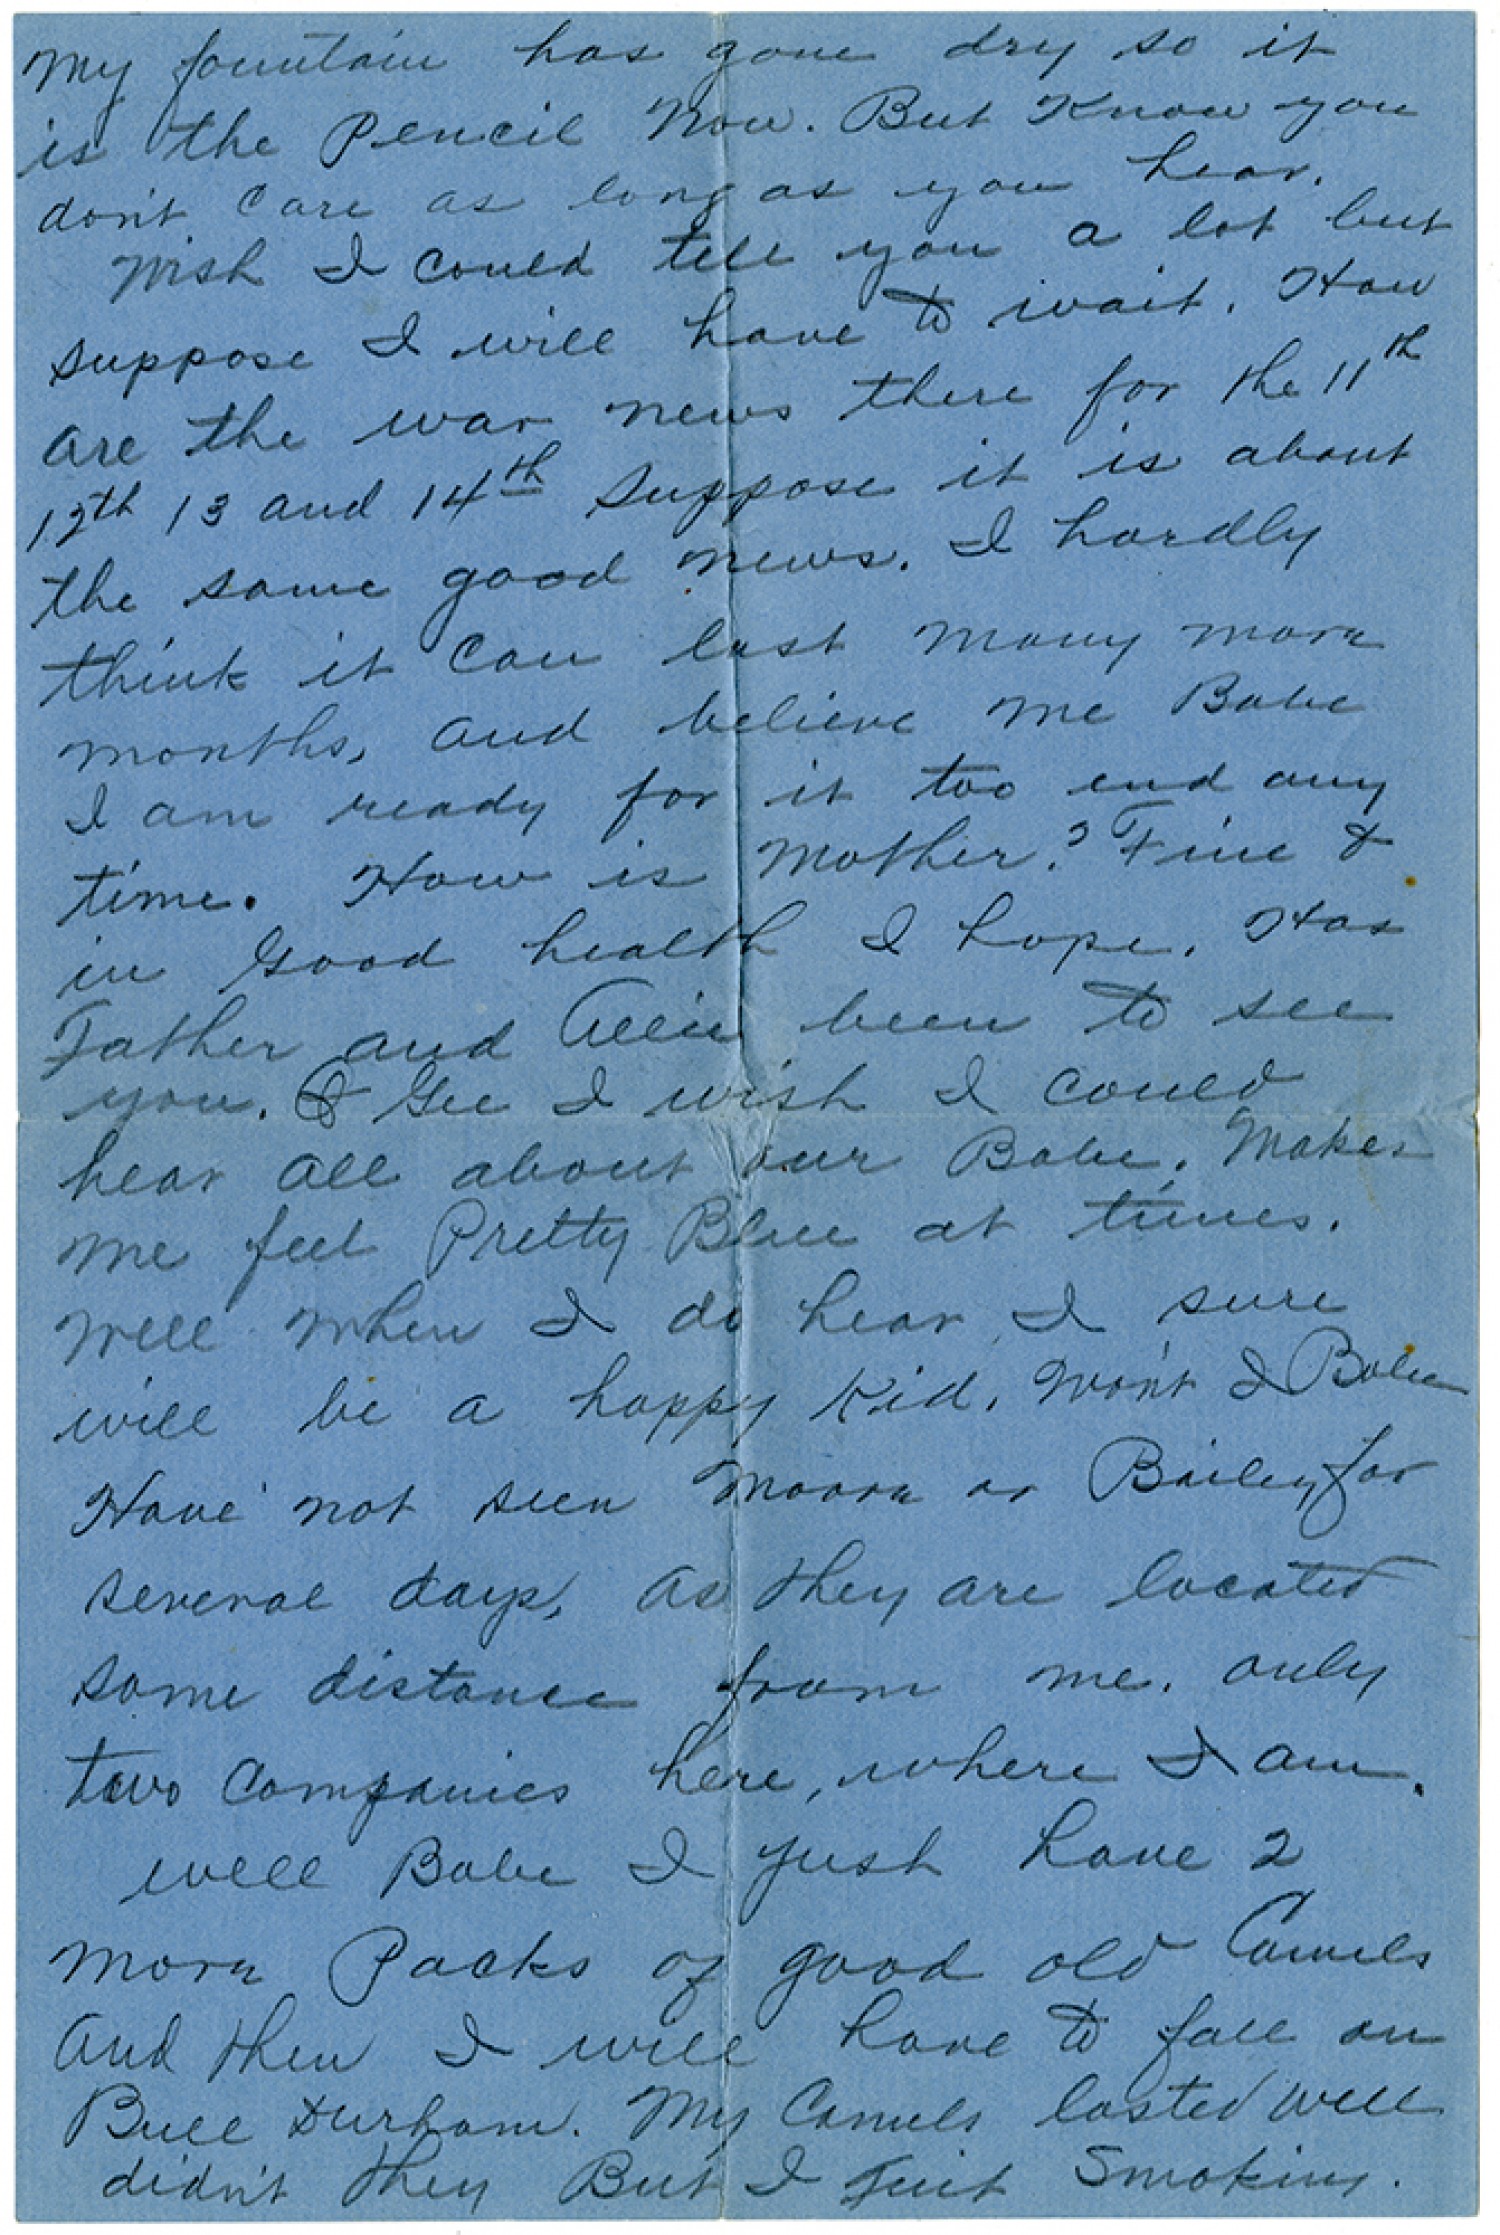 My fountain has gone dry so it
is the Pencil Now. But Know you
don't Care as long as you hear.
Wish I Could tell you a lot but
suppose I will have to wait. How
are the war news there for the 11th
12th 13 and 14th Suppose it is about
the same good news. I hardly
think it Can last Many more
months, and believe me Babe
I am ready for it too end any
time. How is Mother? Fine &
in Good health I hope. Has
Father and Allie been to see
you. & Gee I wish I could
hear all about our Babe. Makes
me feel Pretty Blue at times.
Well When I do hear, I sure
will be a happy Kid, Won't I Babe
Have not seen Moore or Bailey for
several days, as they are located
some distance from me. only
two Companies here, where I am.
well Babe I just have 2
More Packs of good old Camels
And then I will have to fall on
Bull Durham. My Camels lasted well
didn't they But I Just Smoking.